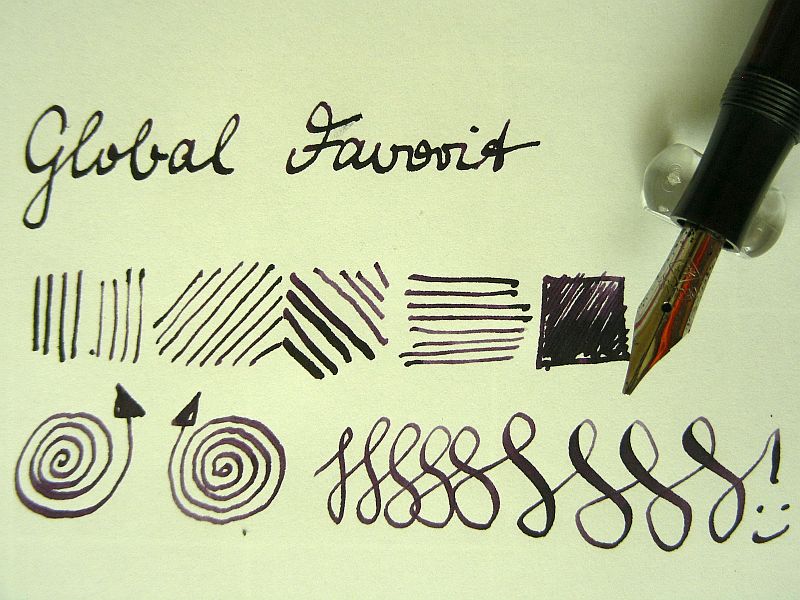 Global Favorit